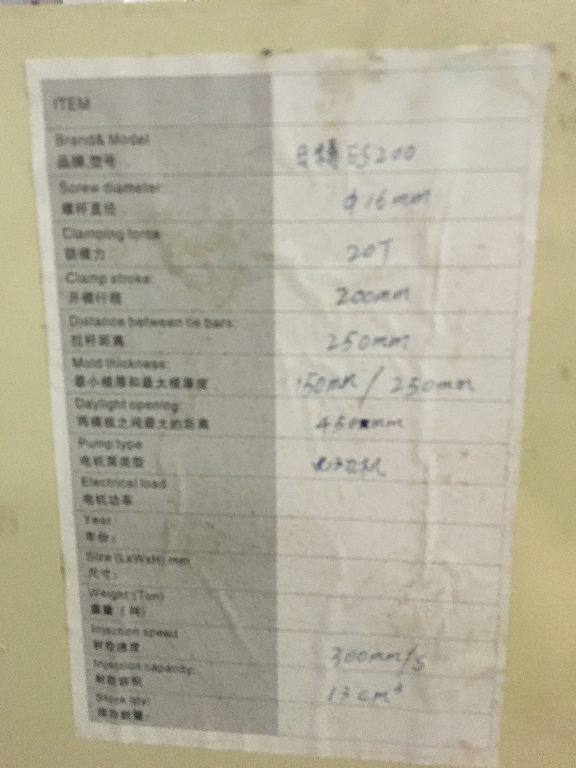 ITEM
Brand& Model
品牌,型号 ES200
Screw diameter:
螺杆直径 φ16mm
Clamping force
锁模力 20T
Clamp stroke:
开模行程 200mm
Distance between tie bars:
拉杆距离 250mm
Mold thickness:
最小模厚和最大模厚度 150mm / 250mm
Daylight opening:
两模板之间最大的距离 450mm
Pump type
电机泵类型
Electrical load
电机功率
Year:
年份:
Size (LxWxH) mm
尺寸:
Weight:(Ton)
重量(吨)
Injection speed
射胶速度 300mm/s
Injection capacity:
射胶容积 13cm³
Stock qty:
库存数量: